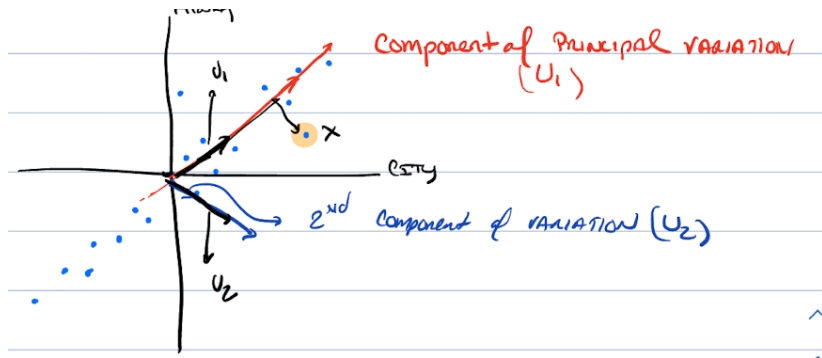 Component of Principal Variation
(U₁)
U₁
X
City
2nd Component of Variation (U₂)
U₂